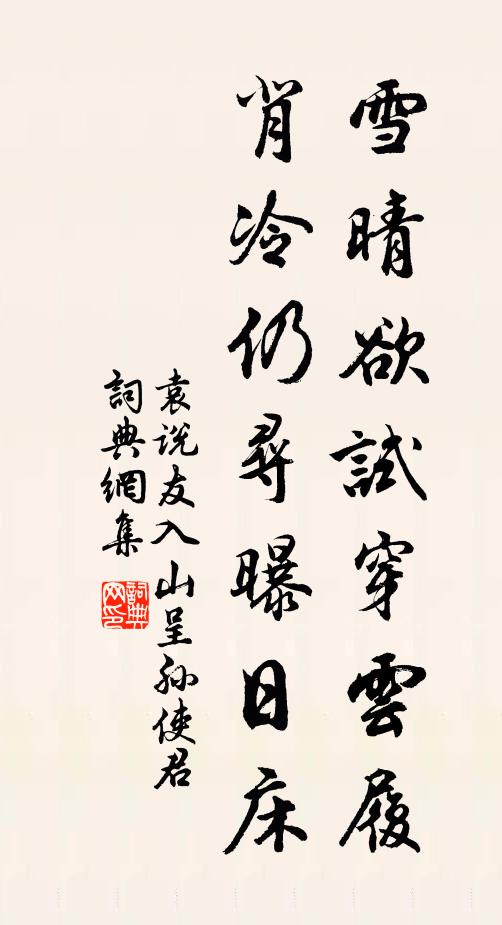 雪晴欲試穿雲履
背冷仍尋曝日床
袁說友入山呈孙使君
詞典網集
詞典网印